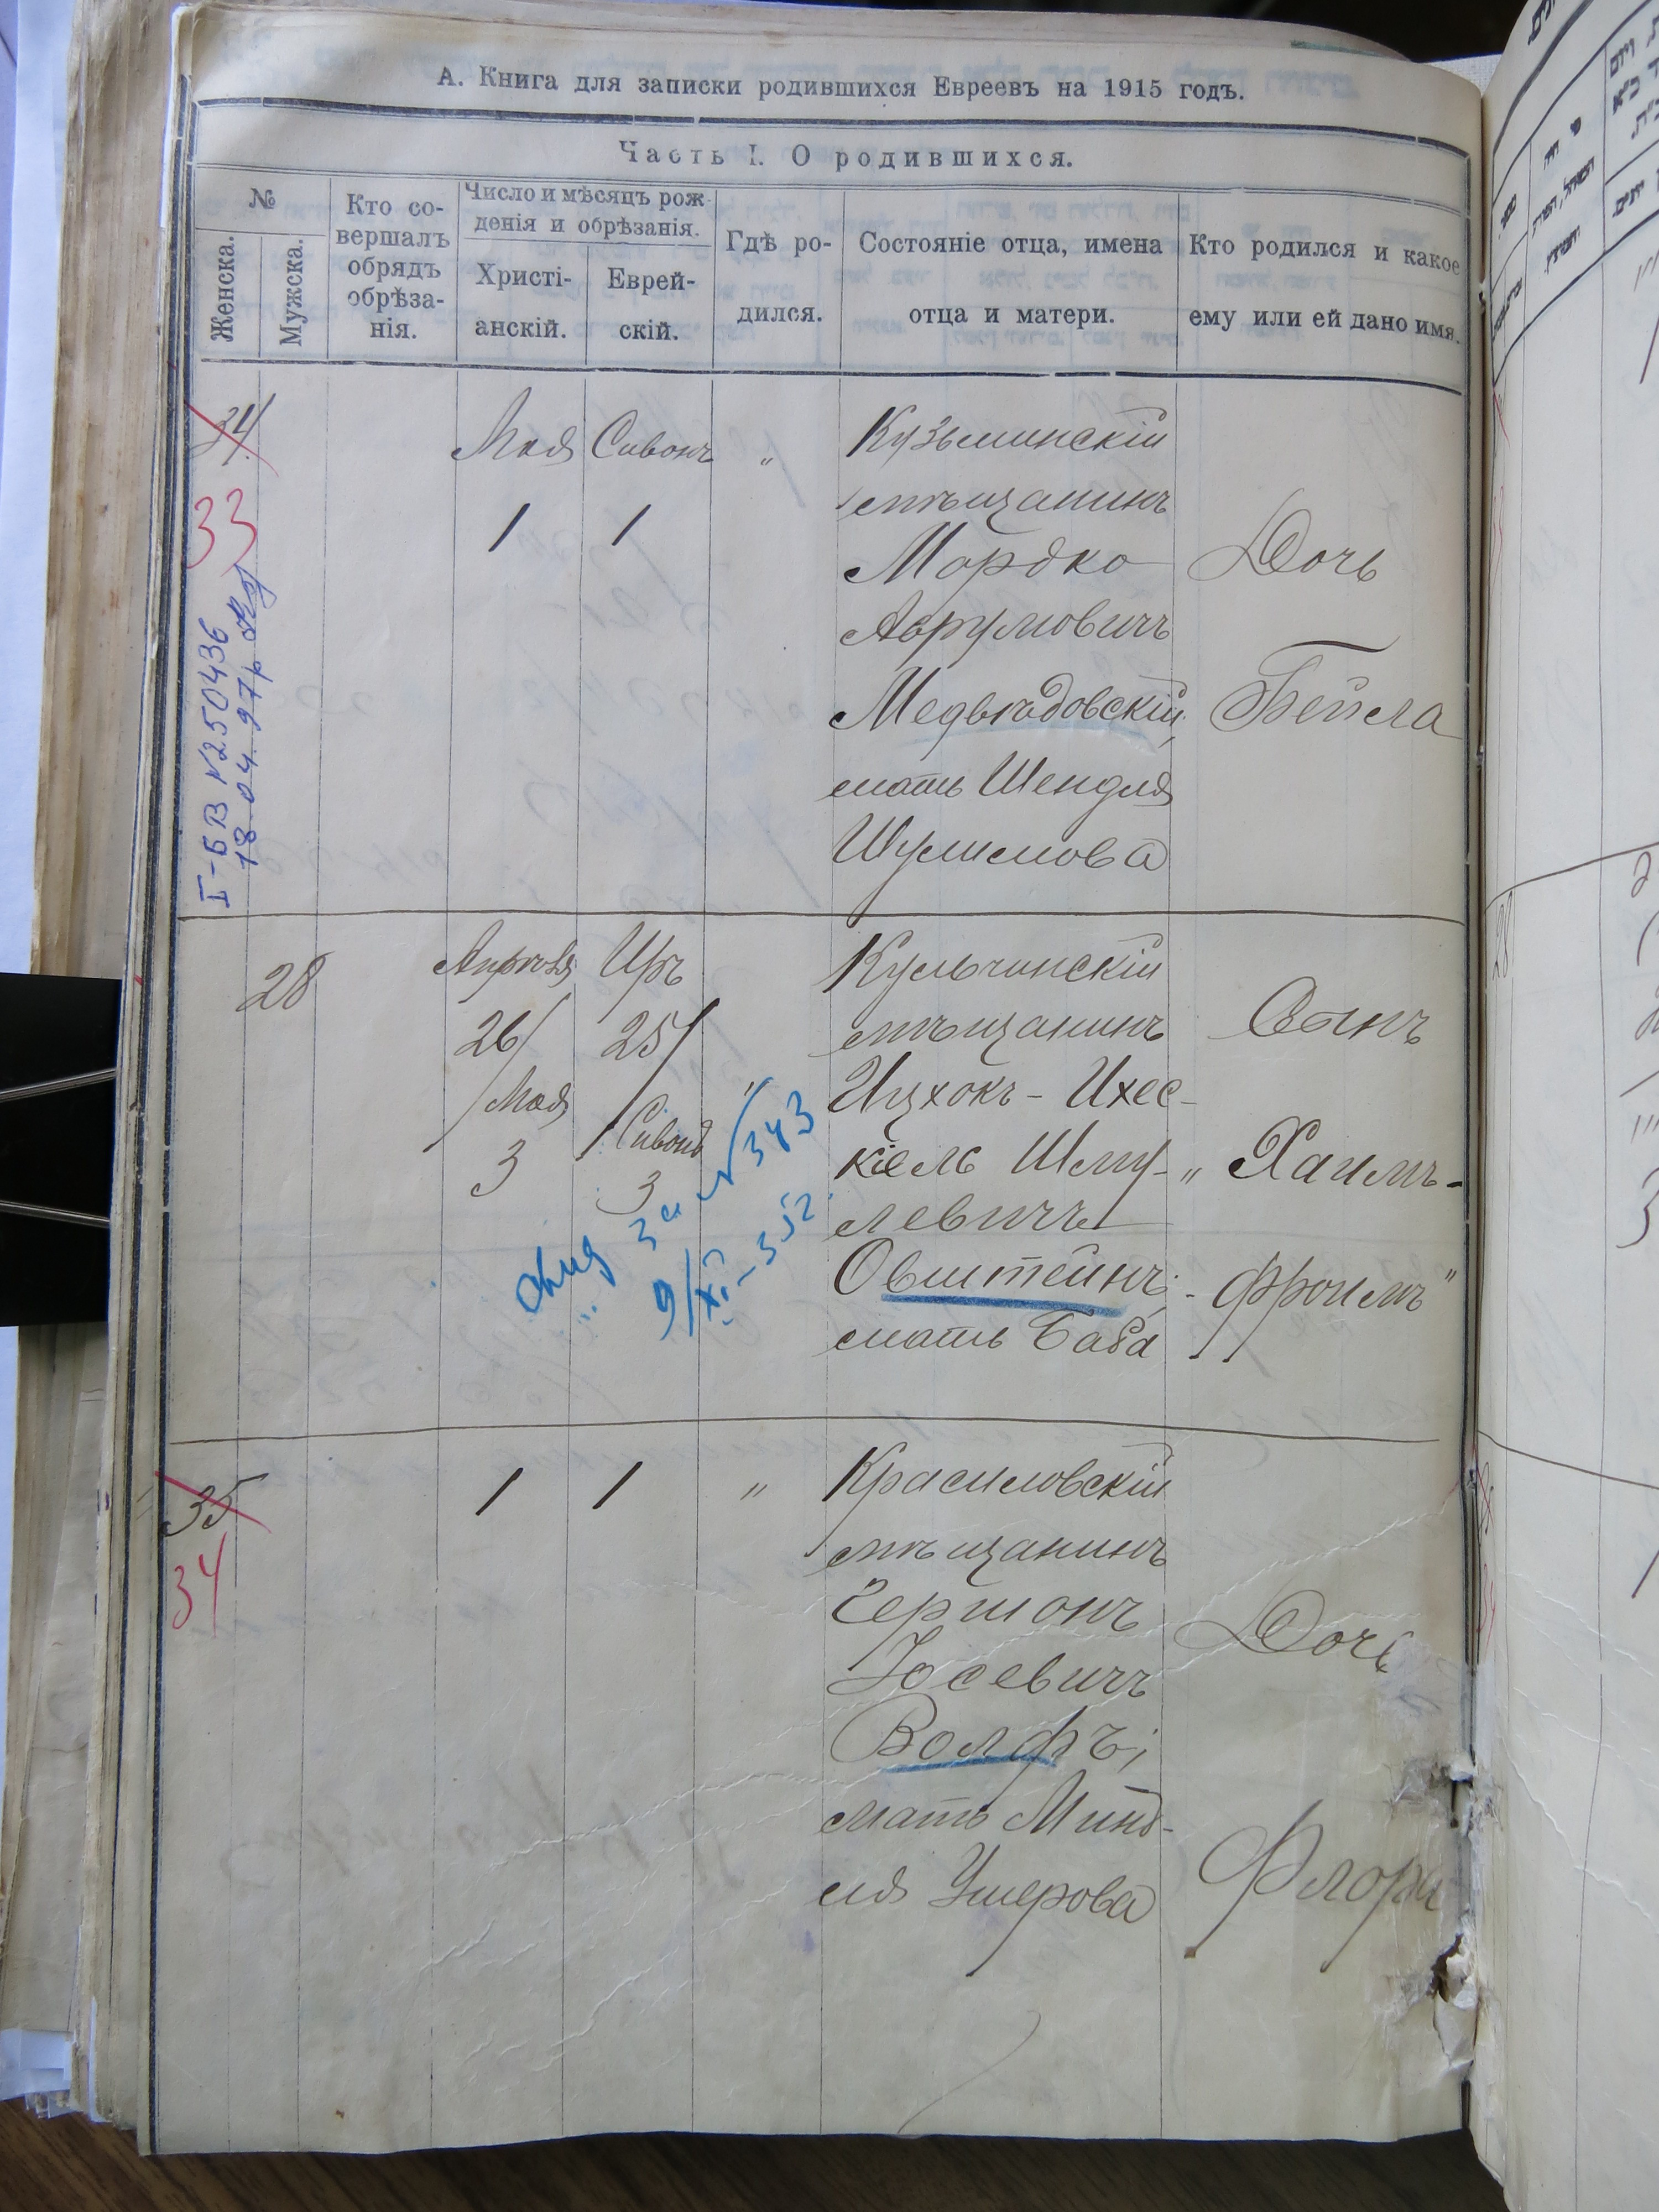 А. Книга для записки родившихся Евреевъ на 1915 годъ.
Часть I. О родившихся.
№
Женска.
Мужска.
Кто со-
вершалъ
обрядъ
обрѣза-
нія.
Число и мѣсяцъ рож
денія и обрѣзанія.
Христі-
анскій.
Еврей-
скій.
Гдѣ ро-
дился.
Состояніе отца, имена
отца и матери.
Кто родился и какое
ему или ей дано имя.
34
33
I-БВ №250436
18 04 97р
Мая
1
Сивонъ
1
"
Кузьминскій
мѣщанинъ
Мордко
Аврумовичъ
Медвѣдовскій,
мать Шендля
Шулимова
Дочь
Бейла
28
Апрѣля
26/
/Мая
3
Иръ
25/
/Сивонъ
3
"
за №343
9/XI-35г.
Кульчинскій
мѣщанинъ
Ицхокъ-Ихес-
кіель Шму-
левичъ
Овштейнъ;
мать Баба
Сынъ
"Хаимъ-
-Фроимъ"
35
34
1
1
"
Красиловскій
мѣщанинъ
Гершонъ
Іосевичъ
Волфъ;
мать Минд-
ля Ушерова
Дочь